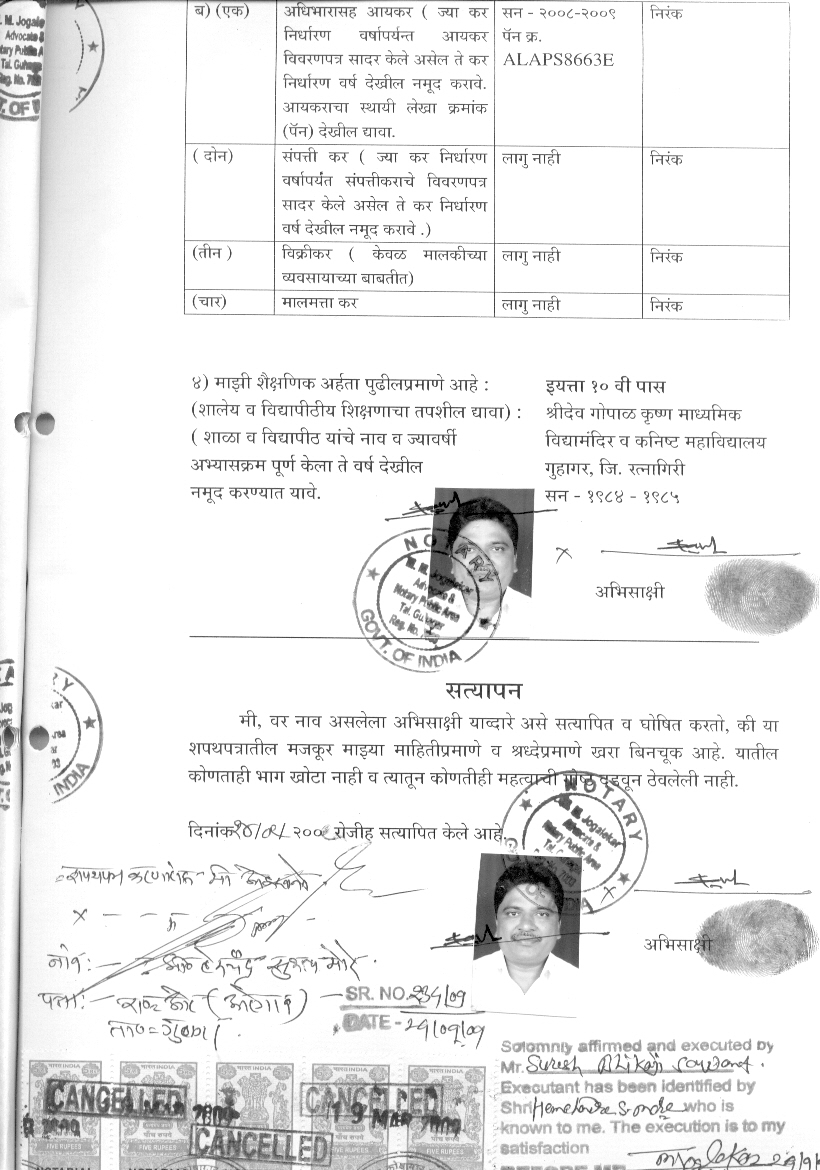 M. Jogalekar
Advocate &
Notary Public A
Tal. Guhagar
Reg. No. 7
T. OF
ब) (एक) अधिभारासह आयकर ( ज्या कर सन - २००८-२००९ निरंक
निर्धारण वर्षापर्यन्त आयकर पॅन क्र.
विवरणपत्र सादर केले असेल ते कर ALAPS8663E
निर्धारण वर्ष देखील नमूद करावे.
आयकराचा स्थायी लेखा क्रमांक
(पॅन) देखील द्यावा.
( दोन) संपत्ती कर ( ज्या कर निर्धारण लागु नाही निरंक
वर्षापर्यंत संपत्तीकराचे विवरणपत्र
सादर केले असेल ते कर निर्धारण
वर्ष देखील नमूद करावे .)
(तीन ) विक्रीकर ( केवळ मालकीच्या लागु नाही निरंक
व्यवसायाच्या बाबतीत)
(चार) मालमत्ता कर लागु नाही निरंक
४) माझी शैक्षणिक अर्हता पुढीलप्रमाणे आहे : इयत्ता १० वी पास
(शालेय व विद्यापीठीय शिक्षणाचा तपशील द्यावा) : श्रीदेव गोपाळ कृष्ण माध्यमिक
( शाळा व विद्यापीठ यांचे नाव व ज्यावर्षी विद्यामंदिर व कनिष्ट महाविद्यालय
अभ्यासक्रम पूर्ण केला ते वर्ष देखील गुहागर, जि. रत्नागिरी
नमूद करण्यात यावे. सन - १९८४ - १९८५
NOTARY
M. M. Jogalekar
Advocate &
Notary Public Area
Tal. Guhagar
Reg. No.
GOVT. OF INDIA
x
अभिसाक्षी
सत्यापन
मी, वर नाव असलेला अभिसाक्षी याव्दारे असे सत्यापित व घोषित करतो, की या
शपथपत्रातील मजकूर माझ्या माहितीप्रमाणे व श्रध्देप्रमाणे खरा बिनचूक आहे. यातील
कोणताही भाग खोटा नाही व त्यातून कोणतीही महत्वाची गोष्ट दडवून ठेवलेली नाही.
NOTARY
M. M. Jogalekar
Advocate &
Notary Public Area
Tal. Guhagar
दिनांक रोजीह सत्यापित केले आहे.
x
अभिसाक्षी
नांव:-
पत्ता:-
SR. NO. 234/09
DATE - 24/09/09
Solomnly affirmed and executed by
Mr. Suresh Bhikaji Sawant.
Executant has been identified by
Shri who is
known to me. The execution is to my
satisfaction
BEFORE ME
भारत INDIA
CANCELLED
CANCELLED
19 MAR 2009
CANCELLED
पाँच रुपये
FIVE RUPEES
NOTARIAL